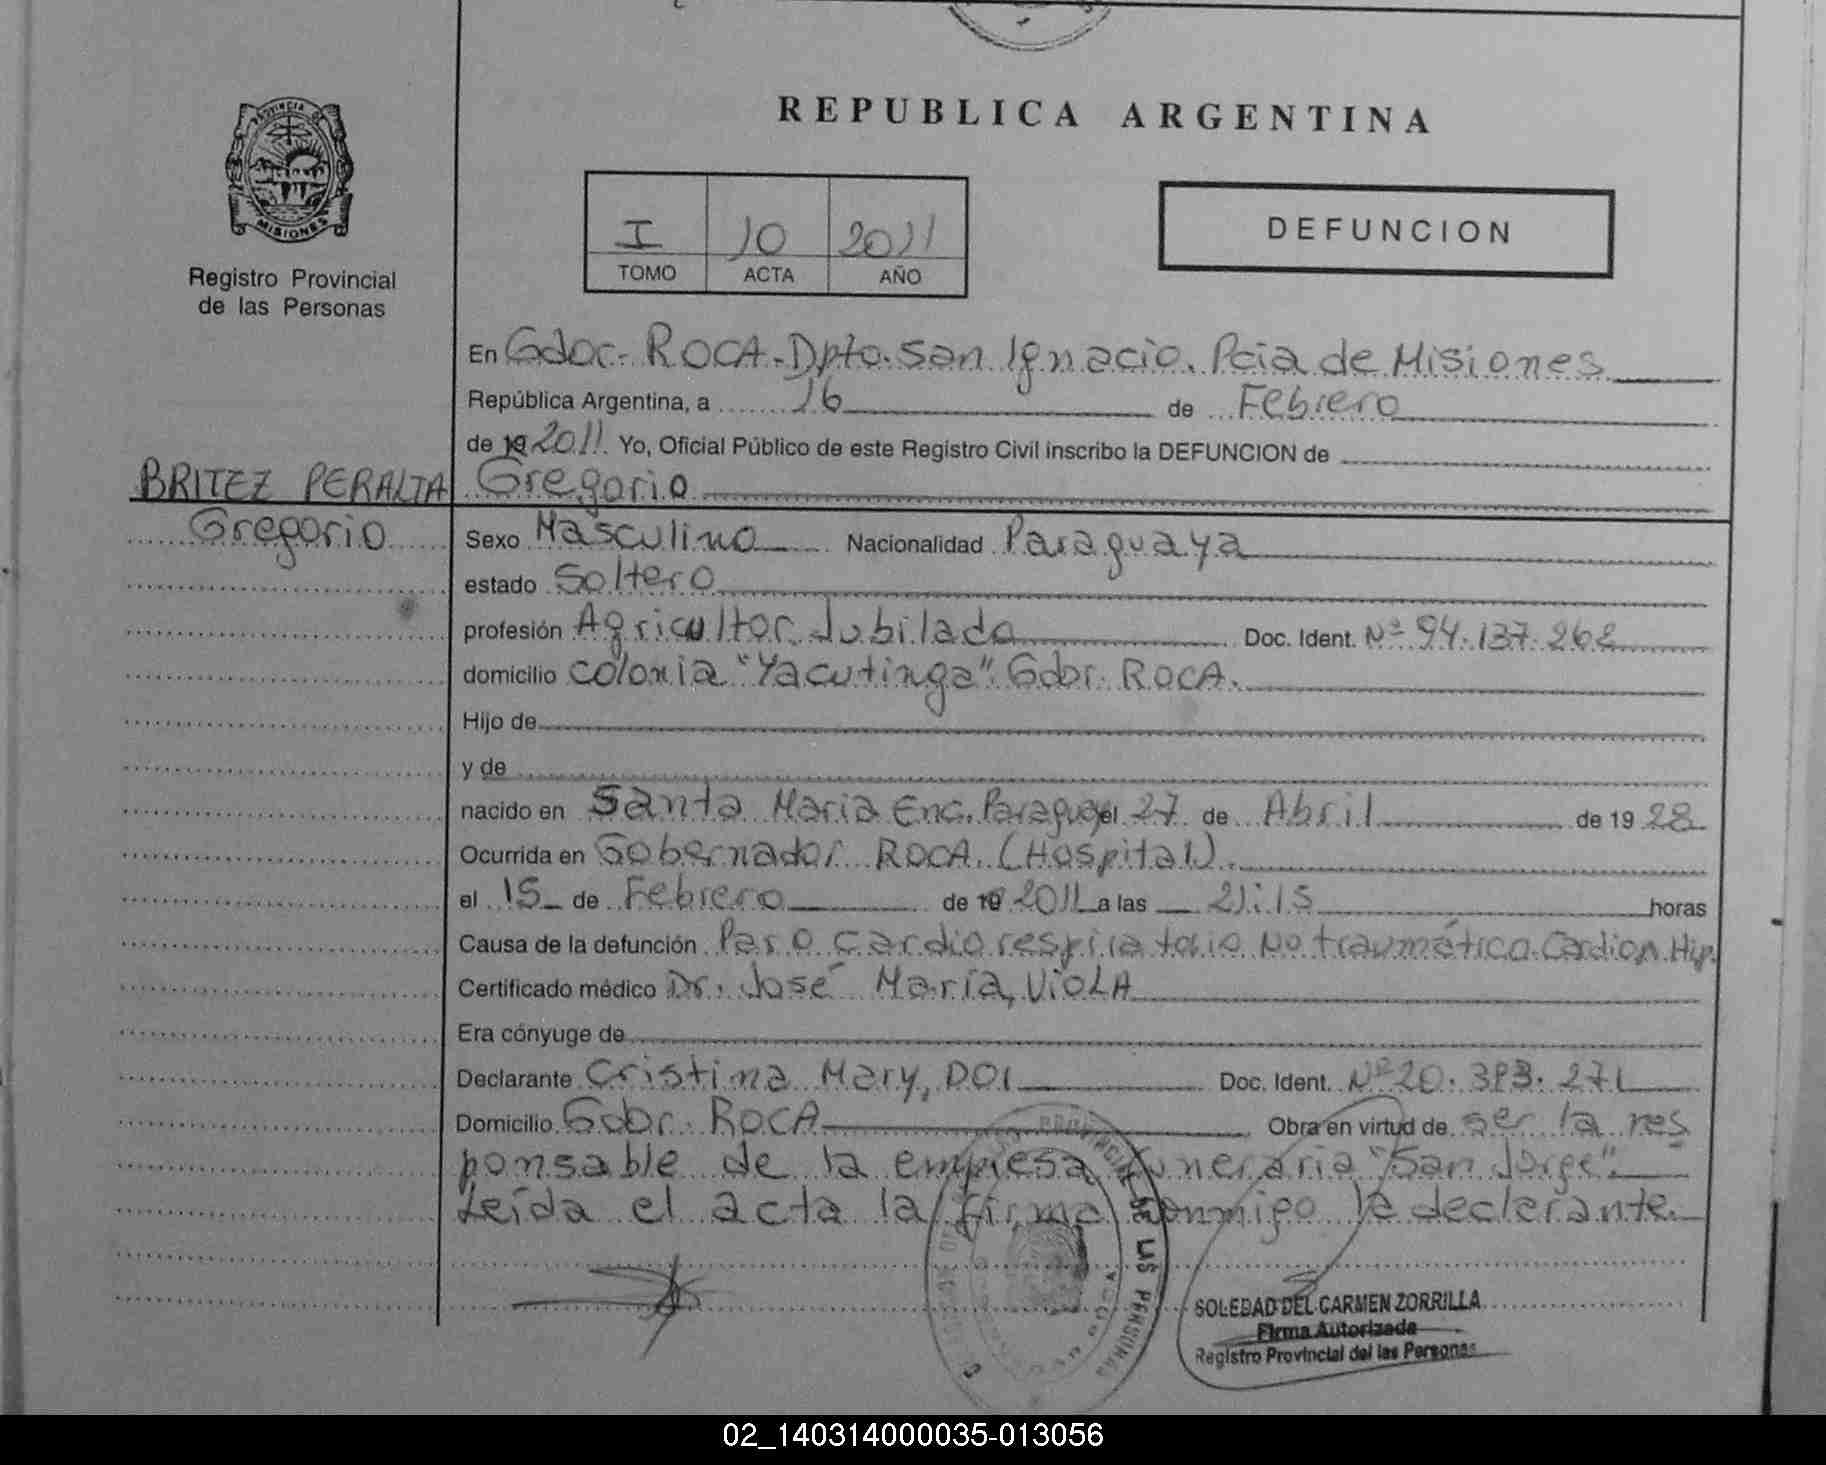 REPUBLICA ARGENTINA
PROVINCIA DE
MISIONES
Registro Provincial
de las Personas
I 10 2011
TOMO ACTA AÑO
DEFUNCION
En Gdor. ROCA. Dpto. San Ignacio. Pcia de Misiones
República Argentina, a 16 de Febrero
de 19 2011. Yo, Oficial Público de este Registro Civil inscribo la DEFUNCION de
BRITEZ PERALTA Gregorio
Gregorio
Sexo Masculino Nacionalidad Paraguaya
estado Soltero
profesión Agricultor Jubilado Doc. Ident. Nº 94.137.262
domicilio Colonia "Yacutinga". Gdor. ROCA.
Hijo de
y de
nacido en Santa Maria Enc. Paraguay el 27 de Abril de 19 28
Ocurrida en Gobernador ROCA. (Hospital).
el 15 de Febrero de 19 2011 a las 21:15 horas
Causa de la defunción Paro cardiorespiratorio No traumático. Cardiop. Hip.
Certificado médico Dr. José María, VIOLA
Era cónyuge de
Declarante Cristina Mary, DOI Doc. Ident. Nº 20.393.271
Domicilio Gobr. ROCA Obra en virtud de ser la res
ponsable de la empresa funeraria "San Jorge".
Leída el acta la firma conmigo la declarante.
PROVINCIAL DE LAS PERSONAS
SOLEDAD DEL CARMEN ZORRILLA
Firma Autorizada
Registro Provincial del las Personas
02_140314000035-013056